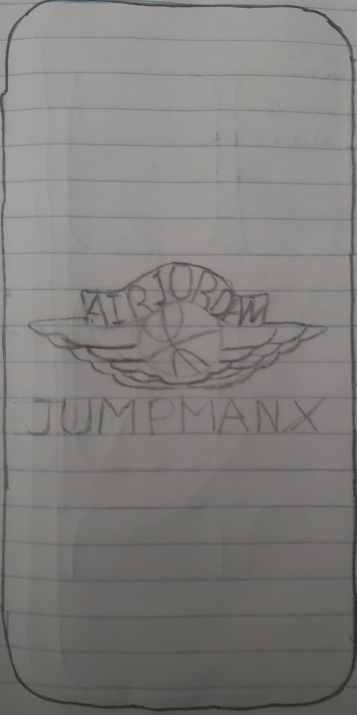 AIR JORDAN
JUMPMANX